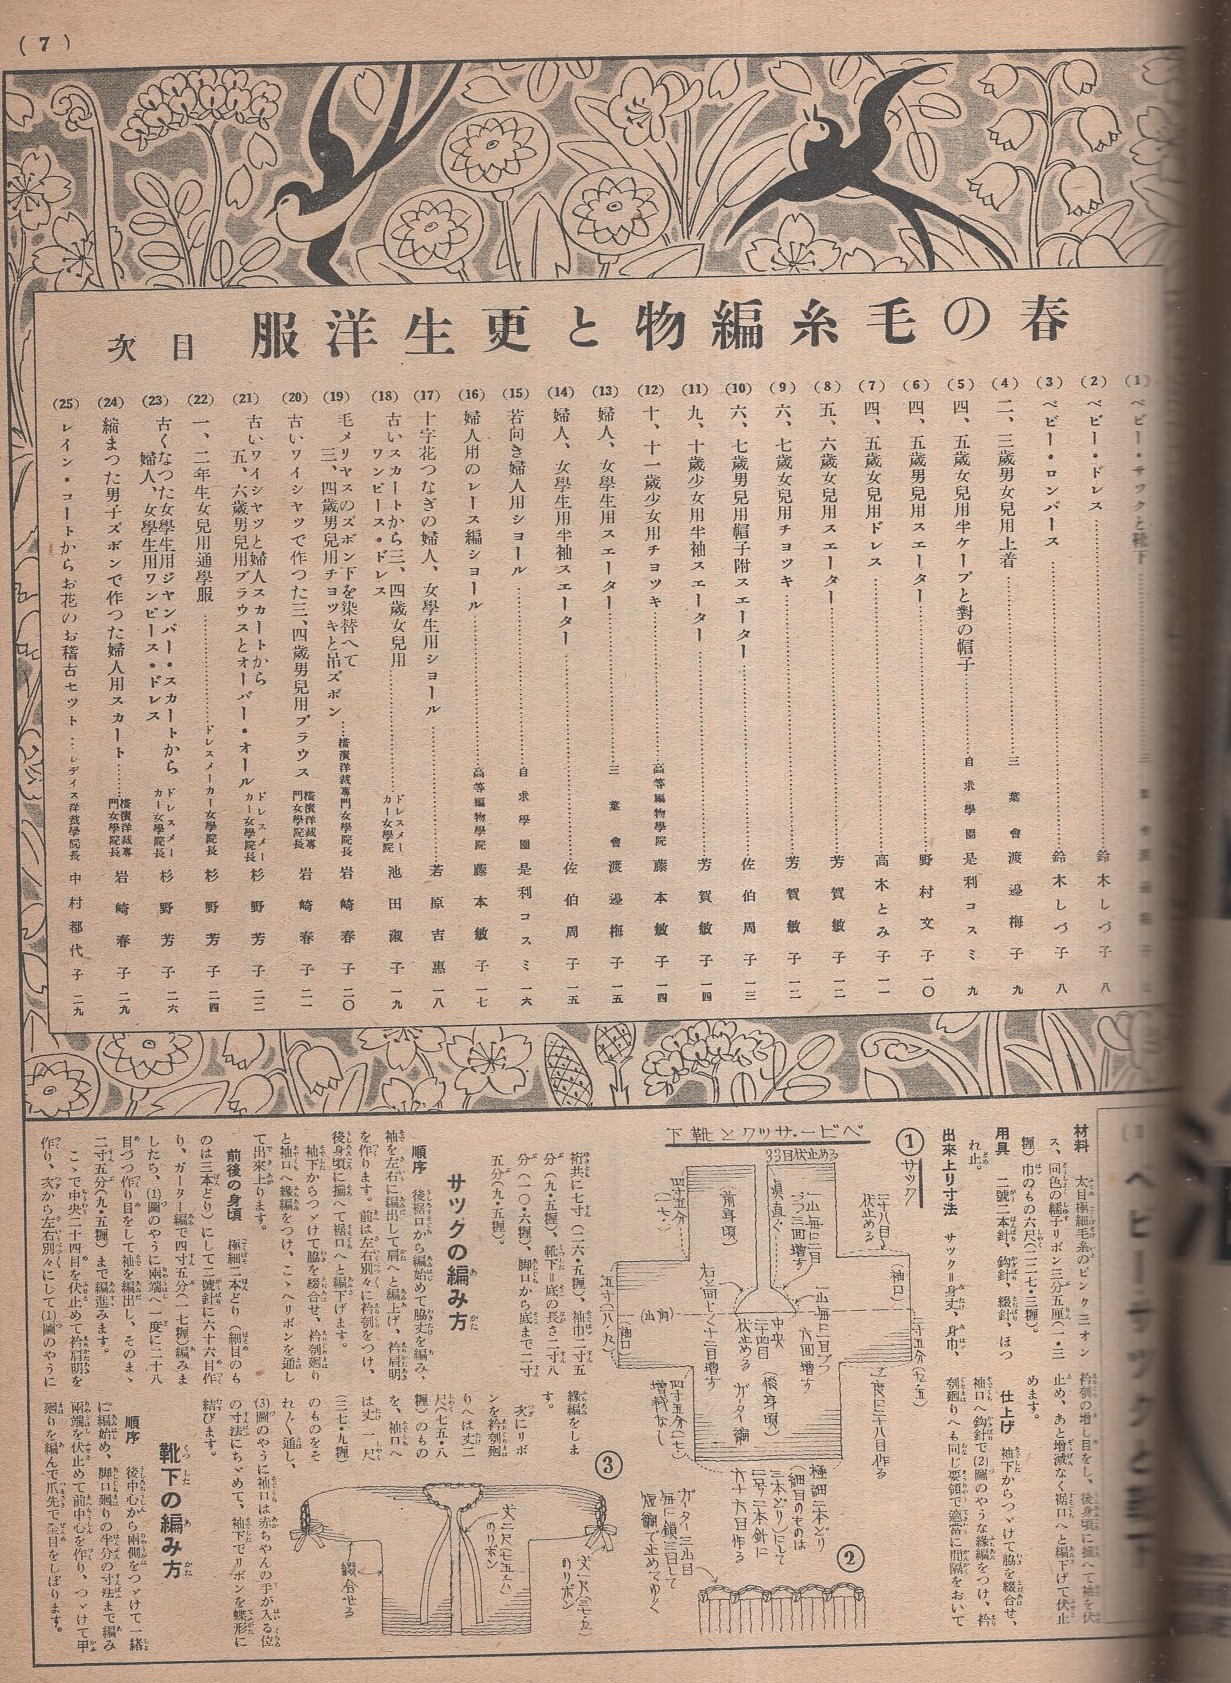 (7)
春の毛糸編物と更生洋服
目次
(1) ベビー・サックと靴下
(2) ベビー・ドレス……鈴木しづ子 八
(3) ベビー・ロンパース……鈴木しづ子 八
(4) 二、三歳男女兒用上着……三葉會 渡邊梅子 九
(5) 四、五歳女兒用半ケープと對の帽子……自求學園 是利コスミ 九
(6) 四、五歳男兒用スエーター……野村文子 一〇
(7) 四、五歳女兒用ドレス……高木とみ子 一一
(8) 五、六歳女兒用スエーター……芳賀敏子 一二
(9) 六、七歳女兒用チョッキ……芳賀敏子 一二
(10) 六、七歳男兒用帽子附スエーター……佐伯周子 一三
(11) 九、十歳少女用半袖スエーター……芳賀敏子 一四
(12) 十、十一歳少女用チョツキ……高等編物學院 藤本敏子 一四
(13) 婦人、女學生用スエーター……三葉會 渡邊梅子 一五
(14) 婦人、女學生用半袖スエーター……佐伯周子 一五
(15) 若向き婦人用ショール……自求學園 是利コスミ 一六
(16) 婦人用のレース編ショール……高等編物學院 藤本敏子 一七
(17) 十字花つなぎの婦人、女學生用ショール……若原吉惠 一八
(18) 古いスカートから三、四歳女兒用
ワンピース・ドレス……ドレスメーカー女學院 池田淑子 一九
(19) 毛メリヤスのズボン下を染替へて
三、四歳男兒用チョツキと吊ズボン…橫濱洋裁專門女學院長 岩崎春子 二〇
(20) 古いワイシャツで作つた三、四歳男兒用ブラウス 橫濱洋裁專門女學院長 岩崎春子 二一
(21) 古いワイシャツと婦人スカートから
五、六歳男兒用ブラウスとオーバー・オール ドレスメーカー女學院長 杉野芳子 二二
(22) 一、二年生女兒用通學服……ドレスメーカー女學院長 杉野芳子 二四
(23) 古くなつた女學生用ジャンパー・スカートから
婦人、女學生用ワンピース・ドレス ドレスメーカー女學院長 杉野芳子 二六
(24) 縮まつた男子ズボンで作つた婦人用スカート……橫濱洋裁專門女學院長 岩崎春子 二九
(25) レイン・コートからお花のお稽古セット…レデイス洋裁學院長 中村都代子 二九
材料 太目極細毛糸のピンク三オン
ス、同色の繻子リボン三分五厘(一・三
糎)巾のもの六尺(二二七・三糎)。
用具 二號二本針、鈎針、綴針、ほつ
れ止。
出來上り寸法 サツク＝身丈、身巾、
裄共に七寸(二六・五糎)、袖巾二寸五
分(九・五糎)、靴下＝底の長さ二寸八
分(一〇・六糎)、脚口から底まで二寸
五分(九・五糎)。
サツクの編み方
順序 後裾口から編始めて脇丈を編み、
袖を左右に編出して肩へと編上げ、衿肩明
を作ります。前は左右別々に衿刳をつけ、
後身頃に揃へて裾口へと編下げます。
袖下からつゞけて脇を綴合せ、衿刳廻り
と袖口へ緣編をつけ、こゝへリボンを通し
て出來上ります。
前後の身頃 極細二本どり(細目のも
のは三本どり)にして二號針に六十六目作
り、ガーター編で四寸五分(一七糎)編みま
したら、(1)圖のやうに兩端へ一度に二十八
目づつ作り目をして袖を編出し、そのまゝ
二寸五分(九・五糎)まで編進みます。
こゝで中央二十四目を伏止めて衿肩明を
作り、次から左右別々にして(1)圖のやうに
衿刳の增し目をし、後身頃に揃へて袖を伏
止め、あと增減なく裾口へと編下げて伏止
めます。
仕上げ 袖下からつゞけて脇を綴合せ、
袖口へ鈎針で(2)圖のやうな緣編をつけ、衿
刳廻りへも同じ要領で適當に間隔をおいて
緣編をしま
す。
次にリボ
ンを衿刳廻
りへは丈二
尺(七五・八
糎)のもの
を、袖口へ
は丈一尺
(三七・九糎)
のものをそ
れ〴〵通し、
(3)圖のやうに袖口は赤ちやんの手が入る位
の寸法にちゞめて、袖下でリボンを蝶形に
結びます。
靴下の編み方
順序 後中心から兩側をつゞけて一緒
に編始め、脚口廻りの半分の寸法まで編み
兩端を伏止めて前中心を作り、つゞけて甲
廻りを編んで爪先で全目をしぼります。
ベビー・サックと靴下
① サック
33目伏止める
四寸五分
(前身頃)
二十八目
伏止める
(袖口)
右と同じく十二目增す
中央
二十四目
伏止める
(後身頃)
ガーター編
四寸五分(一七)
增減なし
一度に二十八目作る
極細二本どり
(細目のものは
三本どり)にして
二号二本針に
六十六目作る
②
ガーター二山目
毎に鎖三目して
短編で止めてゆく
③
丈二尺(七五・八)
のリボン
丈一尺(三七・九)
のリボン
綴合せる